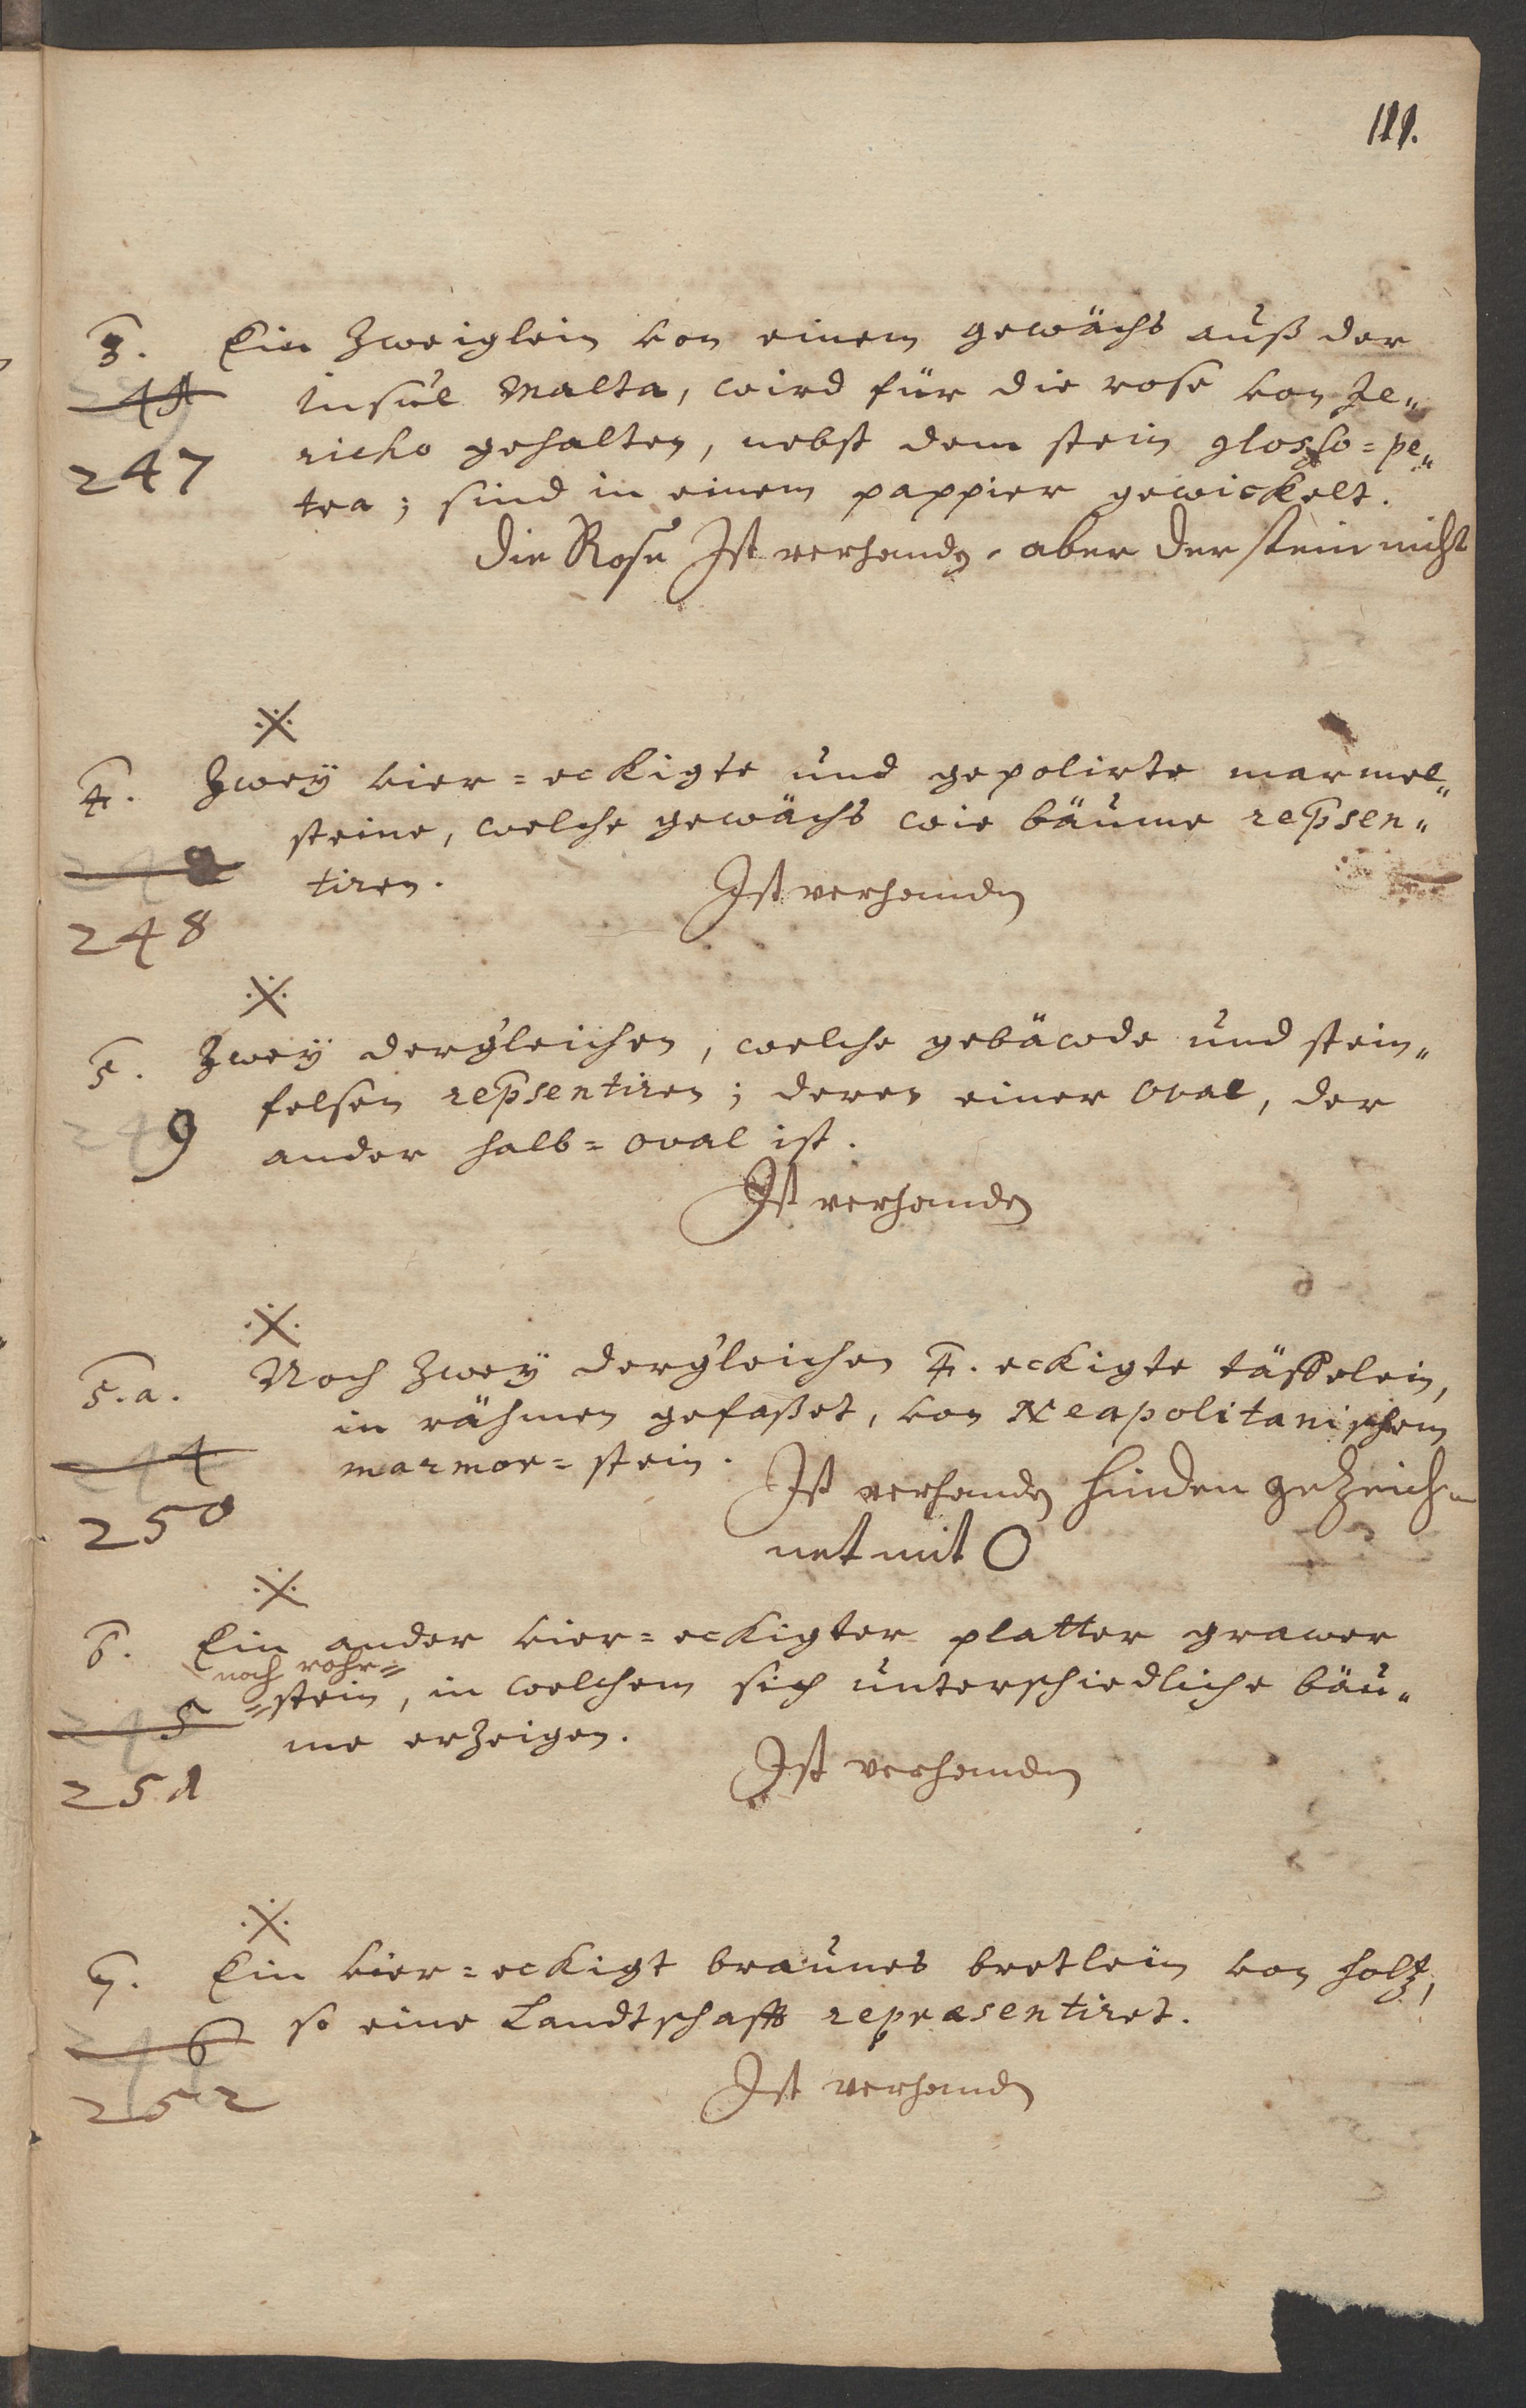 111.
3. Ein Zweiglein von einem gewächs auß der
Insul Malta, wird für die rose von Je„
247
richo gehalten, nebst dem stein glosso=pe„
tra; sind in einem pappier gewickelt.
Die Rose Ist verhanden, aber der stein nicht
4. Zwey vier=eckigte und gepolirte marmel„
steine, welche gewächs wie bäume repsen„
tiren.
Ist verhanden
248
5. Zwey dergleichen, welche gebäwde und stein„
felsen repsentiren; deren einer oval, der
249
ander halb=oval ist.
Ist verhanden
5.a. Noch Zwey dergleichen 4.eckigte täffelein,
in rähmen gefaßet, von Neapolitanischem
244
marmor=stein.
Ist verhanden hinden gezeich=
250
net mit O
6. Ein ander vier=eckigter platter grawer
noch rohr=
245
=stein, in welchem sich unterschiedliche bäu„
me erzeigen.
Ist verhanden
251
7. Ein vier=eckigt braunes bretlein von holtz,
246
so eine Landtschafft repræsentiret.
252
Ist verhanden